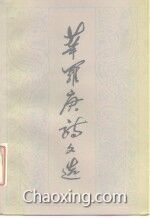 華羅庚詩文选
Chaoxing.com